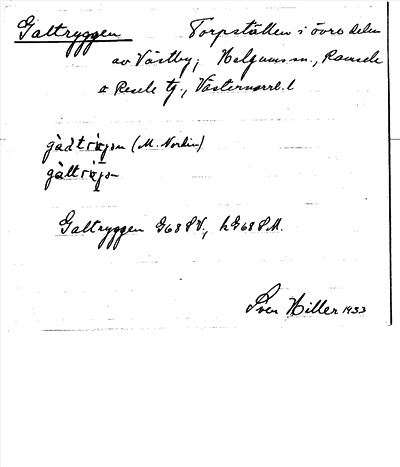 Galtryggen Torpställen i övre delen
av Västby, Helgums sn., Ramsele
o Resele tg., Västernorrl. l
gàdtrìgɔn (M. Nordin)
gàltrìgɔn
Galtryggen G68 SV., hG68 SM.
Sven Hiller 1933